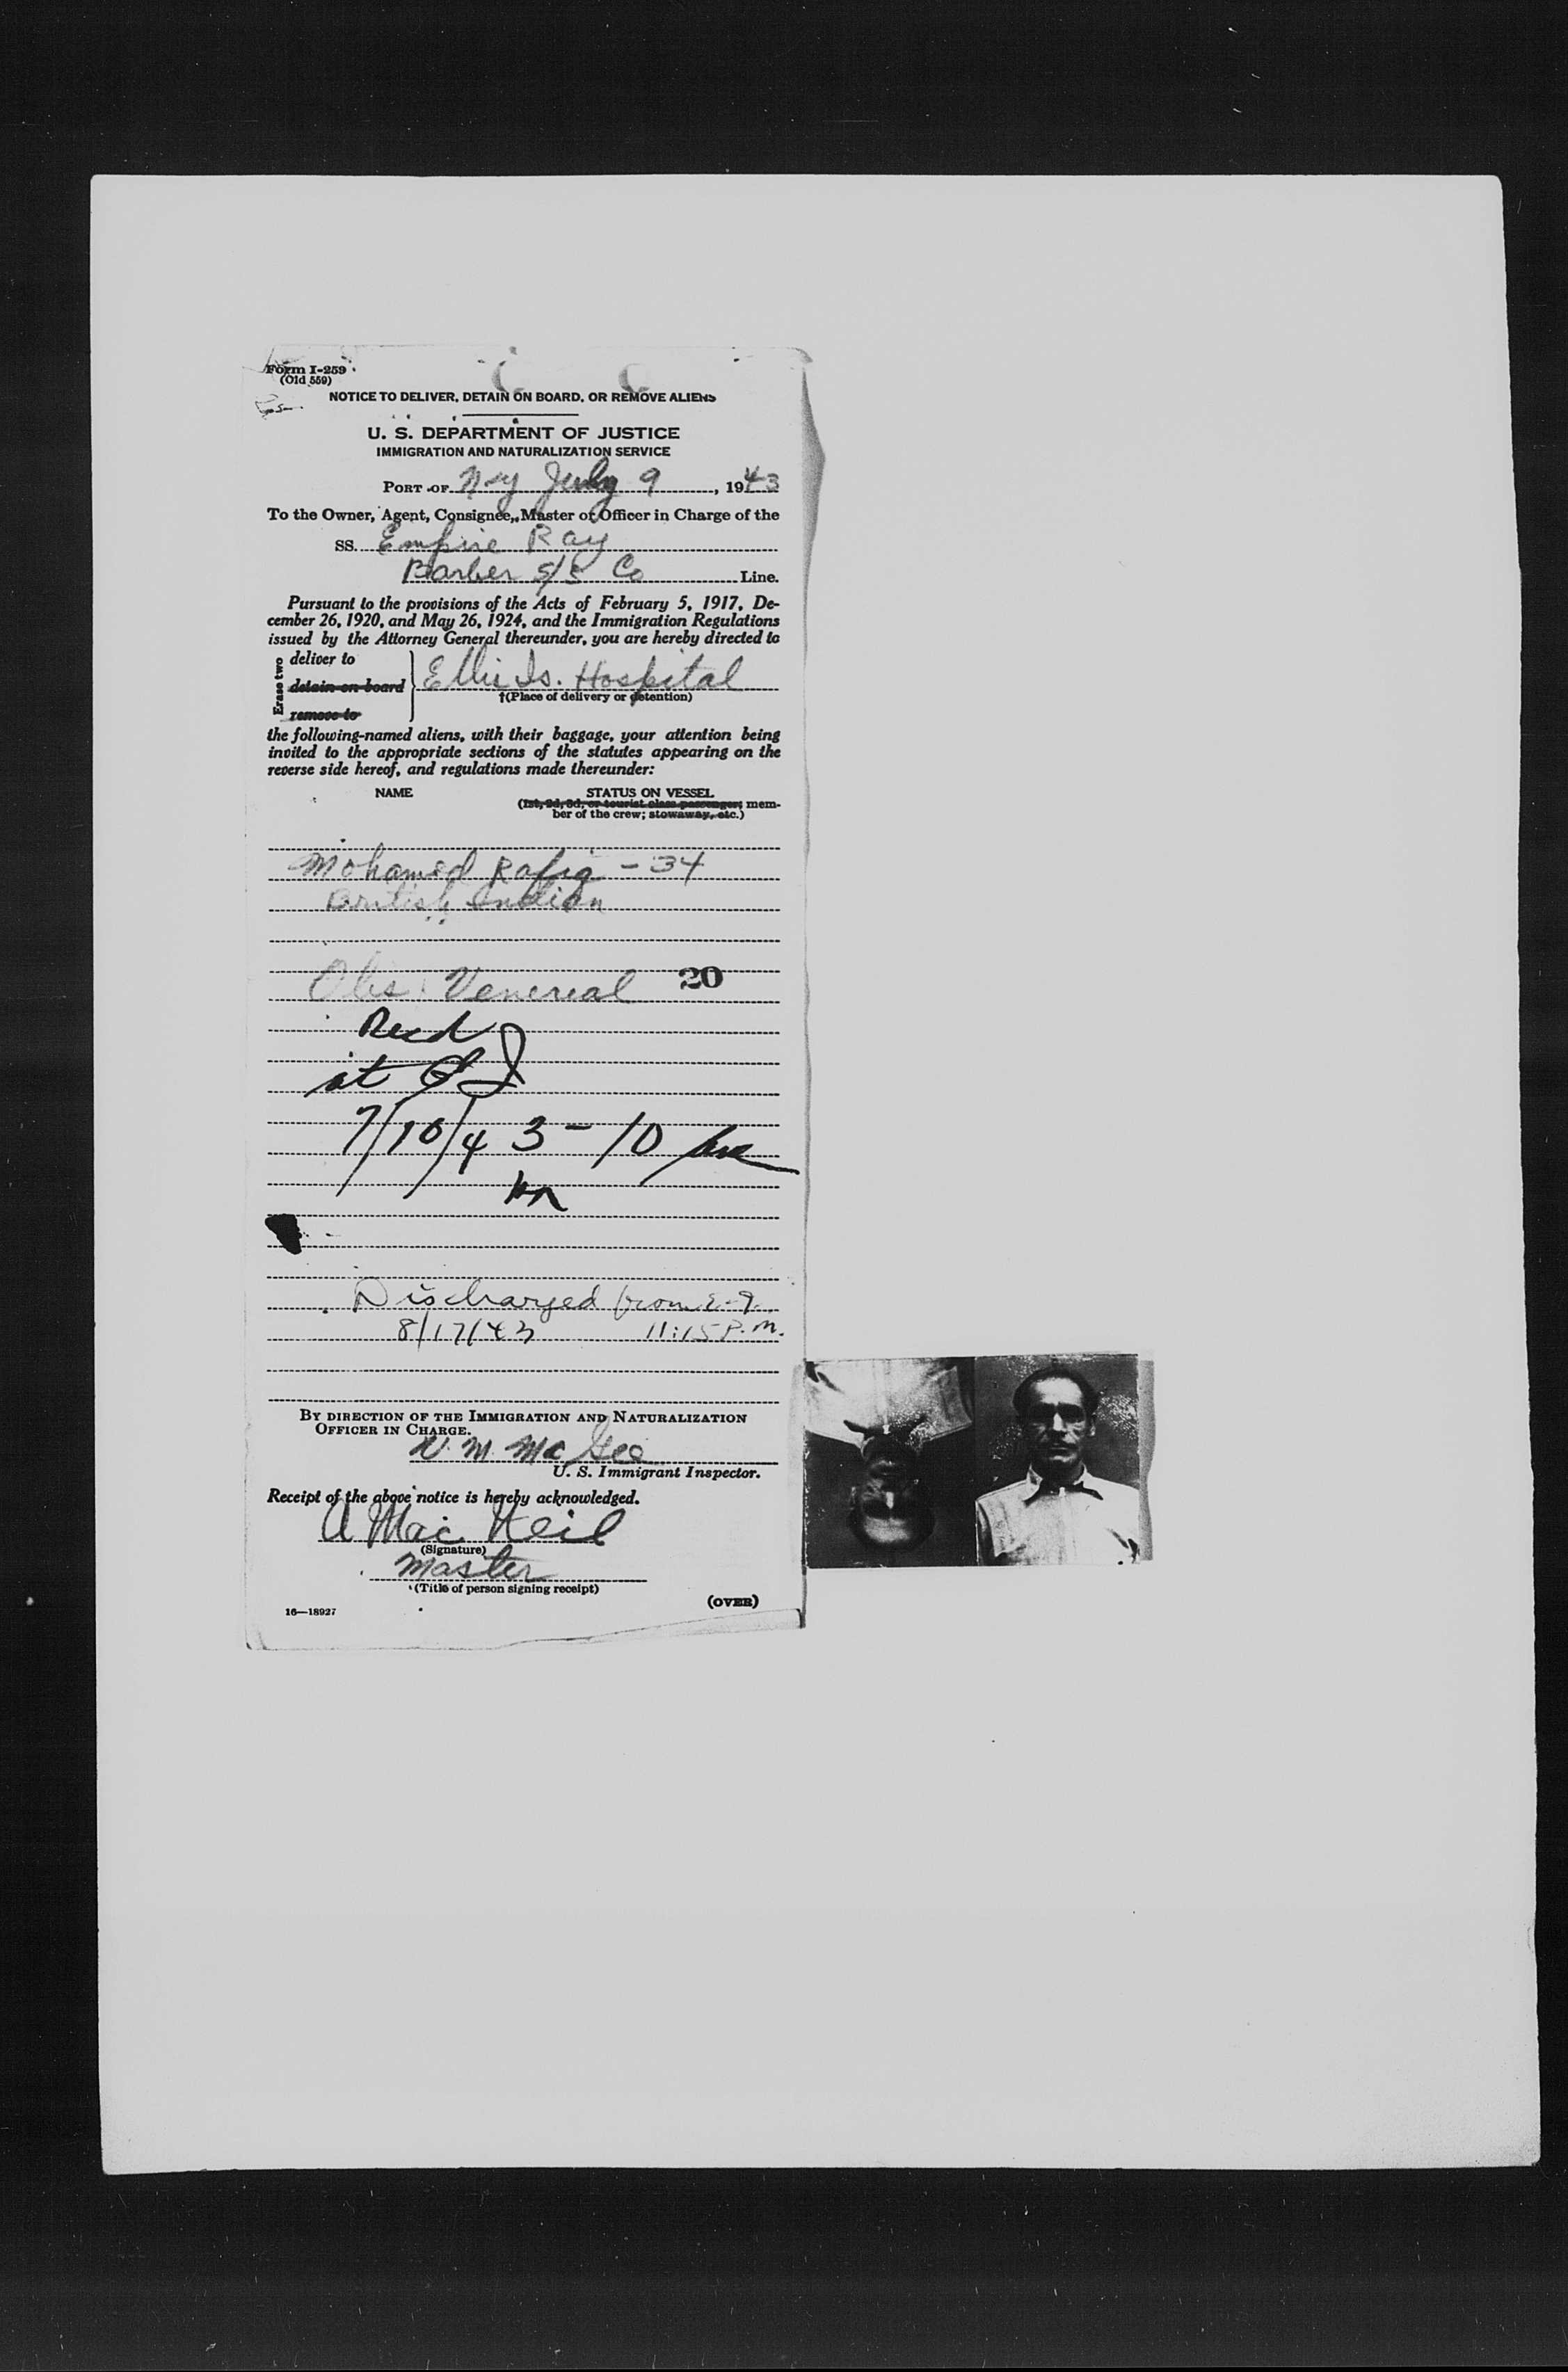 Form I-259
(Old 559)
NOTICE TO DELIVER, DETAIN ON BOARD, OR REMOVE ALIENS
U. S. DEPARTMENT OF JUSTICE
IMMIGRATION AND NATURALIZATION SERVICE
PORT OF N-Y July 9, 1943
To the Owner, Agent, Consignee, Master or Officer in Charge of the
SS. Empire Ray
Barber S/S Co Line.
Pursuant to the provisions of the Acts of February 5, 1917, De-
cember 26, 1920, and May 26, 1924, and the Immigration Regulations
issued by the Attorney General thereunder, you are hereby directed to
Erase two
deliver to
detain on board
remove to
Ellis Is. Hospital
†(Place of delivery or detention)
the following-named aliens, with their baggage, your attention being
invited to the appropriate sections of the statutes appearing on the
reverse side hereof, and regulations made thereunder:
NAME STATUS ON VESSEL
(1st, 2d, 3d, or tourist class passenger; mem-
ber of the crew; stowaway, etc.)
Mohamed Rafiq - 34
British Indian
Obs: Venereal 20
Recd
at EI
7/10/43 - 10
Discharged from E-I.
8/17/43 11:15 P.M.
BY DIRECTION OF THE IMMIGRATION AND NATURALIZATION
OFFICER IN CHARGE.
McGee
U. S. Immigrant Inspector.
Receipt of the above notice is hereby acknowledged.
A MacNeil
(Signature)
Master
(Title of person signing receipt)
(OVER)
16—18927